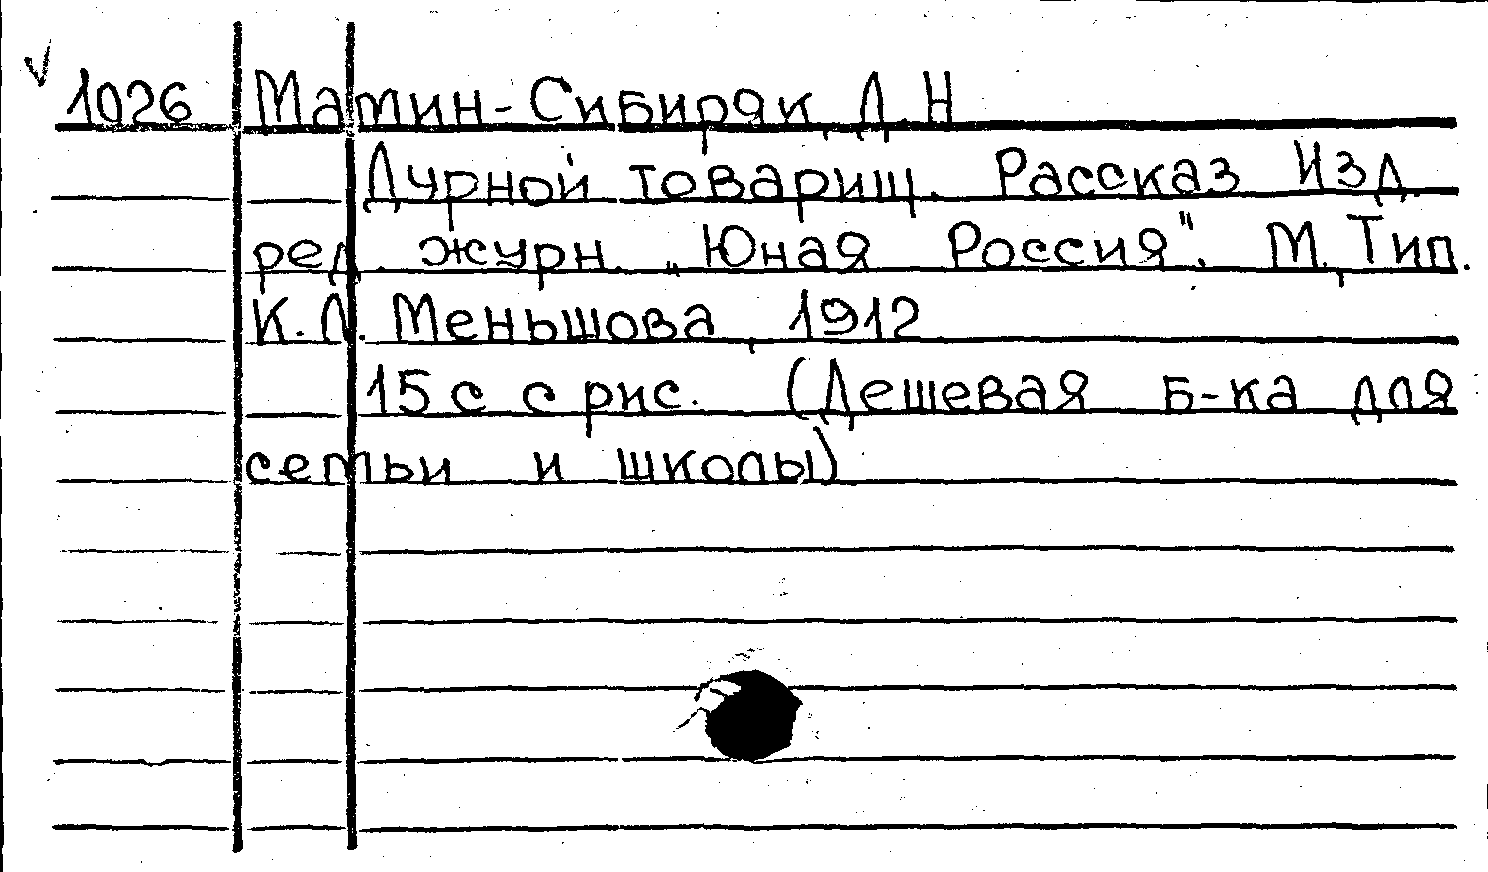 1026 Мамин-Сибиряк, Д.Н
Дурной товарищ. Рассказ Изд.
ред. журн. „Юная Россия". М., Тип.
К.Л. Меньшова, 1912
15 с с рис. (Дешевая б-ка для
семьи и школы)